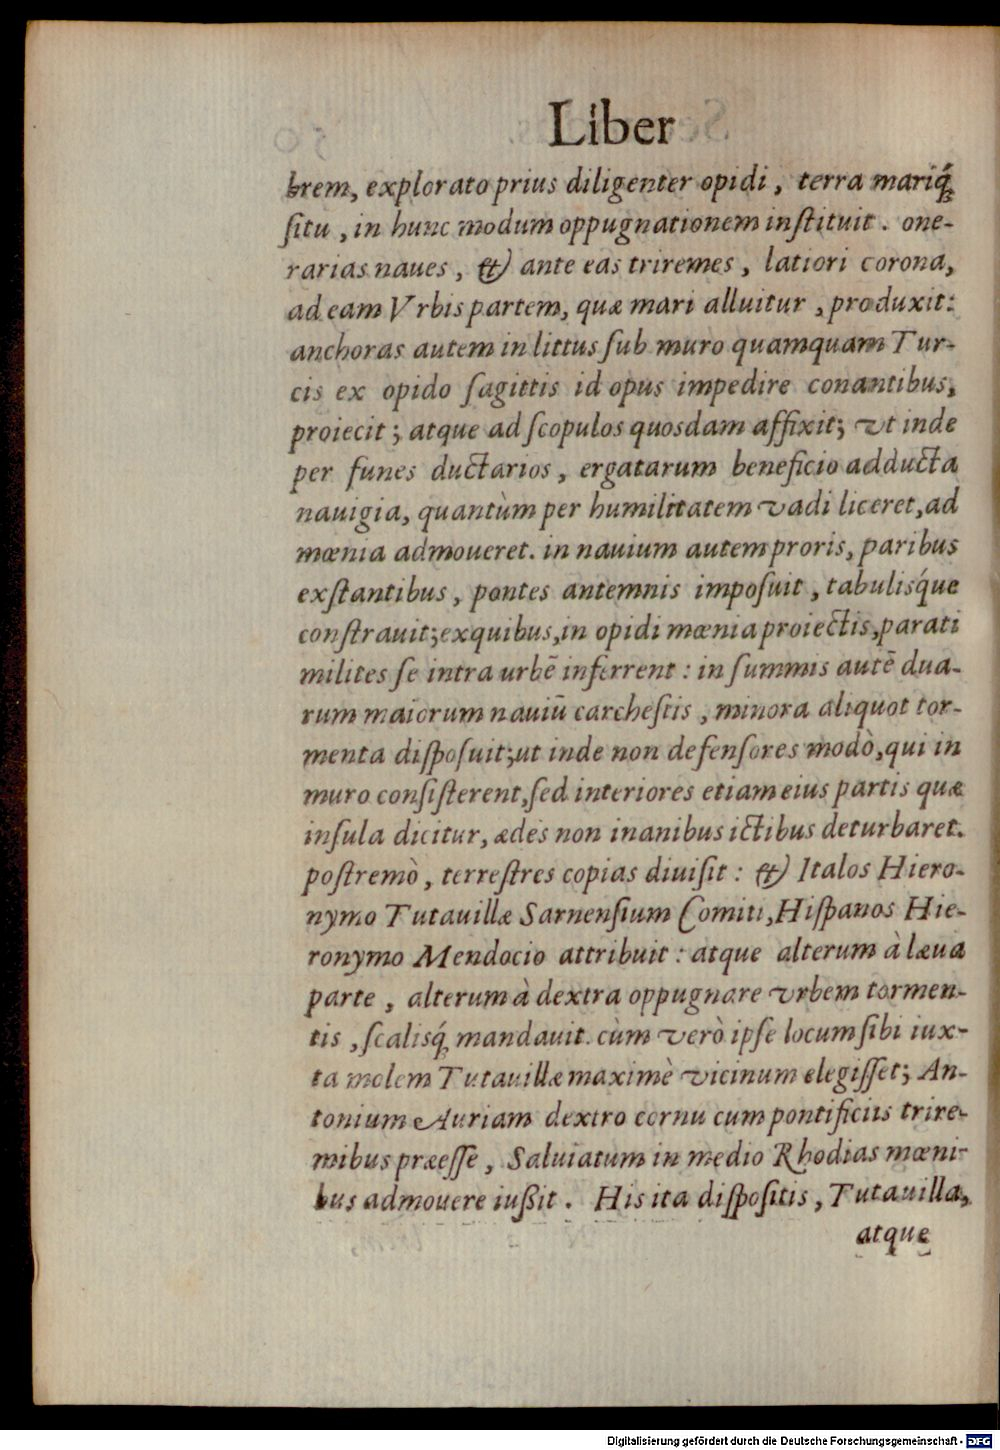 Liber
brem, explorato prius diligenter opidi, terra mariq́;
ſitu, in hunc modum oppugnationem inſtituit. one-
rarias naues, & ante eas triremes, latiori corona,
ad eam Vrbis partem, quæ mari alluitur, produxit:
anchoras autem in littus ſub muro quamquam Tur-
cis ex opido ſagittis id opus impedire conantibus,
proiecit; atque ad ſcopulos quosdam affixit; vt inde
per funes ductarios, ergatarum beneficio adducta
nauigia, quantùm per humilitatem vadi liceret, ad
mœnia admoueret. in nauium autem proris, paribus
exſtantibus, pontes antemnis impoſuit, tabulisq́ue
conſtrauit; ex quibus, in opidi mœnia proiectis, parati
milites ſe intra urbē inferrent: in ſummis autē dua-
rum maiorum nauiū carcheſiis, minora aliquot tor-
menta diſpoſuit; ut inde non defenſores modò, qui in
muro conſiſterent, ſed interiores etiam eius partis quæ
inſula dicitur, ædes non inanibus ictibus deturbaret.
poſtremò, terreſtres copias diuiſit: & Italos Hiero-
nymo Tutauillæ Sarnenſium Comiti, Hiſpanos Hie-
ronymo Mendocio attribuit: atque alterum à læua
parte, alterum à dextra oppugnare vrbem tormen-
tis, ſcalisq́; mandauit. cùm verò ipſe locum ſibi iux-
ta molem Tutauillæ maximè vicinum elegiſſet; An-
tonium Auriam dextro cornu cum pontificiis trire-
mibus præeſſe, Saluiatum in medio Rhodias mœni-
bus admouere iußit. His ita diſpoſitis, Tutauilla,
atque
Digitalisierung gefördert durch die Deutsche Forschungsgemeinschaft - DFG